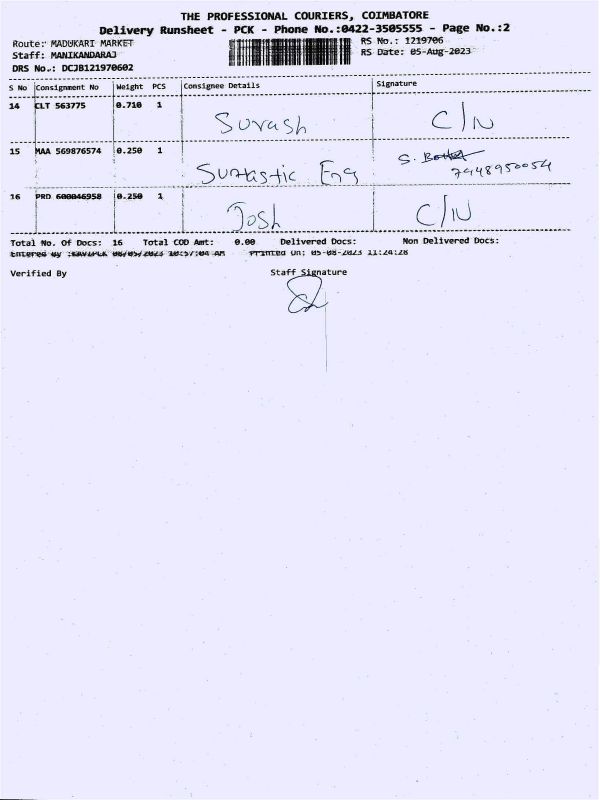 THE PROFESSIONAL COURIERS, COIMBATORE
Delivery Runsheet - PCK - Phone No.:0422-3505555 - Page No.:2
Route: MADUKARI MARKET RS No.: 1219706
Staff: MANIKANDARAJ RS Date: 05-Aug-2023
DRS No.: DCJB121970602
S No Consignment No Weight PCS Consignee Details Signature
14 CLT 563775 0.710 1 Suvash C/N
15 MAA 569876574 0.250 1 Suntastic Eng S. 7948950054
16 PRD 600046958 0.250 1 Josh C/N
Total No. Of Docs: 16 Total COD Amt: 0.00 Delivered Docs: Non Delivered Docs:
Entered By : 10:57:04 AM Printed On: 05-08-2023 11:24:28
Verified By Staff Signature